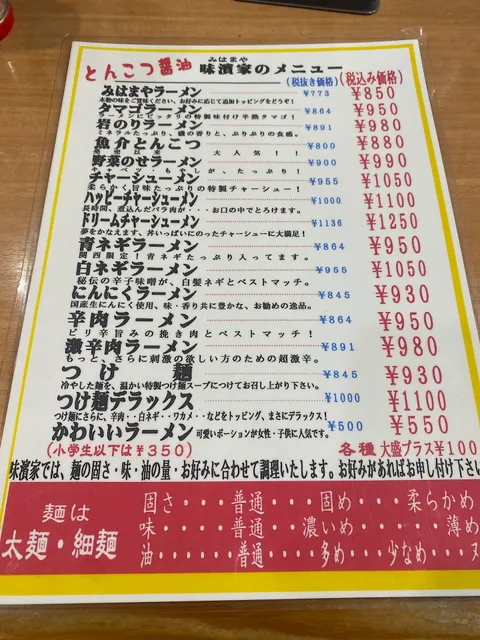 みはまや
とんこつ醤油 味濱家のメニュー
(税抜き価格) (税込み価格)
みはまやラーメン ¥773 ¥850
本物の味をご賞味ください。お好みに応じて追加トッピングをどうぞ!
タマゴラーメン ¥864 ¥950
ラーメンにピッタリの特製味付け半熟タマゴ!
岩のりラーメン ¥891 ¥980
ミネラルたっぷり、磯の香りと、ぷりぷりの食感。
魚介とんこつ ¥800 ¥880
発売以来 大人気!!
野菜のせラーメン ¥900 ¥990
も、たっぷり!
チャーシューメン ¥955 ¥1050
柔らかく旨味たっぷりの特製チャーシュー!
ハッピーチャーシューメン ¥1000 ¥1100
長時間、煮込んだバラ肉が・・・お口の中でとろけます。
ドリームチャーシューメン ¥1136 ¥1250
夢をかなえます、丼いっぱいにのったチャーシューに大満足!
青ネギラーメン ¥864 ¥950
関西限定!青ネギたっぷり入ってます。
白ネギラーメン ¥955 ¥1050
秘伝の辛子味噌が、白髪ネギとベストマッチ。
にんにくラーメン ¥845 ¥930
国産生にんにく使用、味・香り共に豊かな、お勧めの逸品。
辛肉ラーメン ¥864 ¥950
ピリ辛旨みの挽き肉とベストマッチ!
激辛肉ラーメン ¥891 ¥980
もっと、さらに刺激の欲しい方のための超激辛。
つけ麺 ¥845 ¥930
冷やした麺を、温かい特製つけ麺スープにつけてお召し上がり下さい。
つけ麺デラックス ¥1000 ¥1100
つけ麺にさらに、辛肉・・白ネギ・・ワカメ・・などをトッピング、まさにデラックス!
かわいいラーメン 可愛いポーションが女性・子供に人気です。 ¥500 ¥550
(小学生以下は¥350) 各種 大盛プラス¥100
味濱家では、麺の固さ・味・油の量・お好みに合わせて調理いたします。お好みがあればお申し付け下さい
麺は
太麺・細麺
固さ・・・・普通・・・固め・・・柔らかめ
味・・・・・普通・・・濃いめ・・・・薄め
油・・・・・普通・・・多め・・少なめ・・ヌ